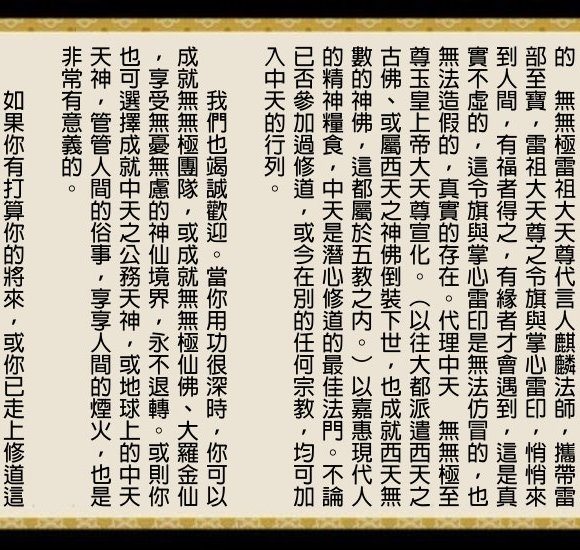 的　無無極雷祖大天尊代言人麒麟法師，攜帶雷
部至寶，雷祖大天尊之令旗與掌心雷印，悄悄來
到人間，有福者得之，有緣者才會遇到，這是真
實不虛的，這令旗與掌心雷印是無法仿冒的，也
無法造假的，真實的存在。代理中天　無無極至
尊玉皇上帝大天尊宣化。（以往大都派遣西天之
古佛、或屬西天之神佛倒裝下世，也成就西天無
數的神佛，這都屬於五教之內。）以嘉惠現代人
的精神糧食，中天是潛心修道的最佳法門。不論
已否參加過修道，或今在別的任何宗教，均可加
入中天的行列。
我們也竭誠歡迎。當你用功很深時，你可以
成就無無極團隊，或成就無無極仙佛、大羅金仙
，享受無憂無慮的神仙境界，永不退轉。或則你
也可選擇成就中天之公務天神，或地球上的中天
天神，管管人間的俗事，享享人間的煙火，也是
非常有意義的。
如果你有打算你的將來，或你已走上修道這